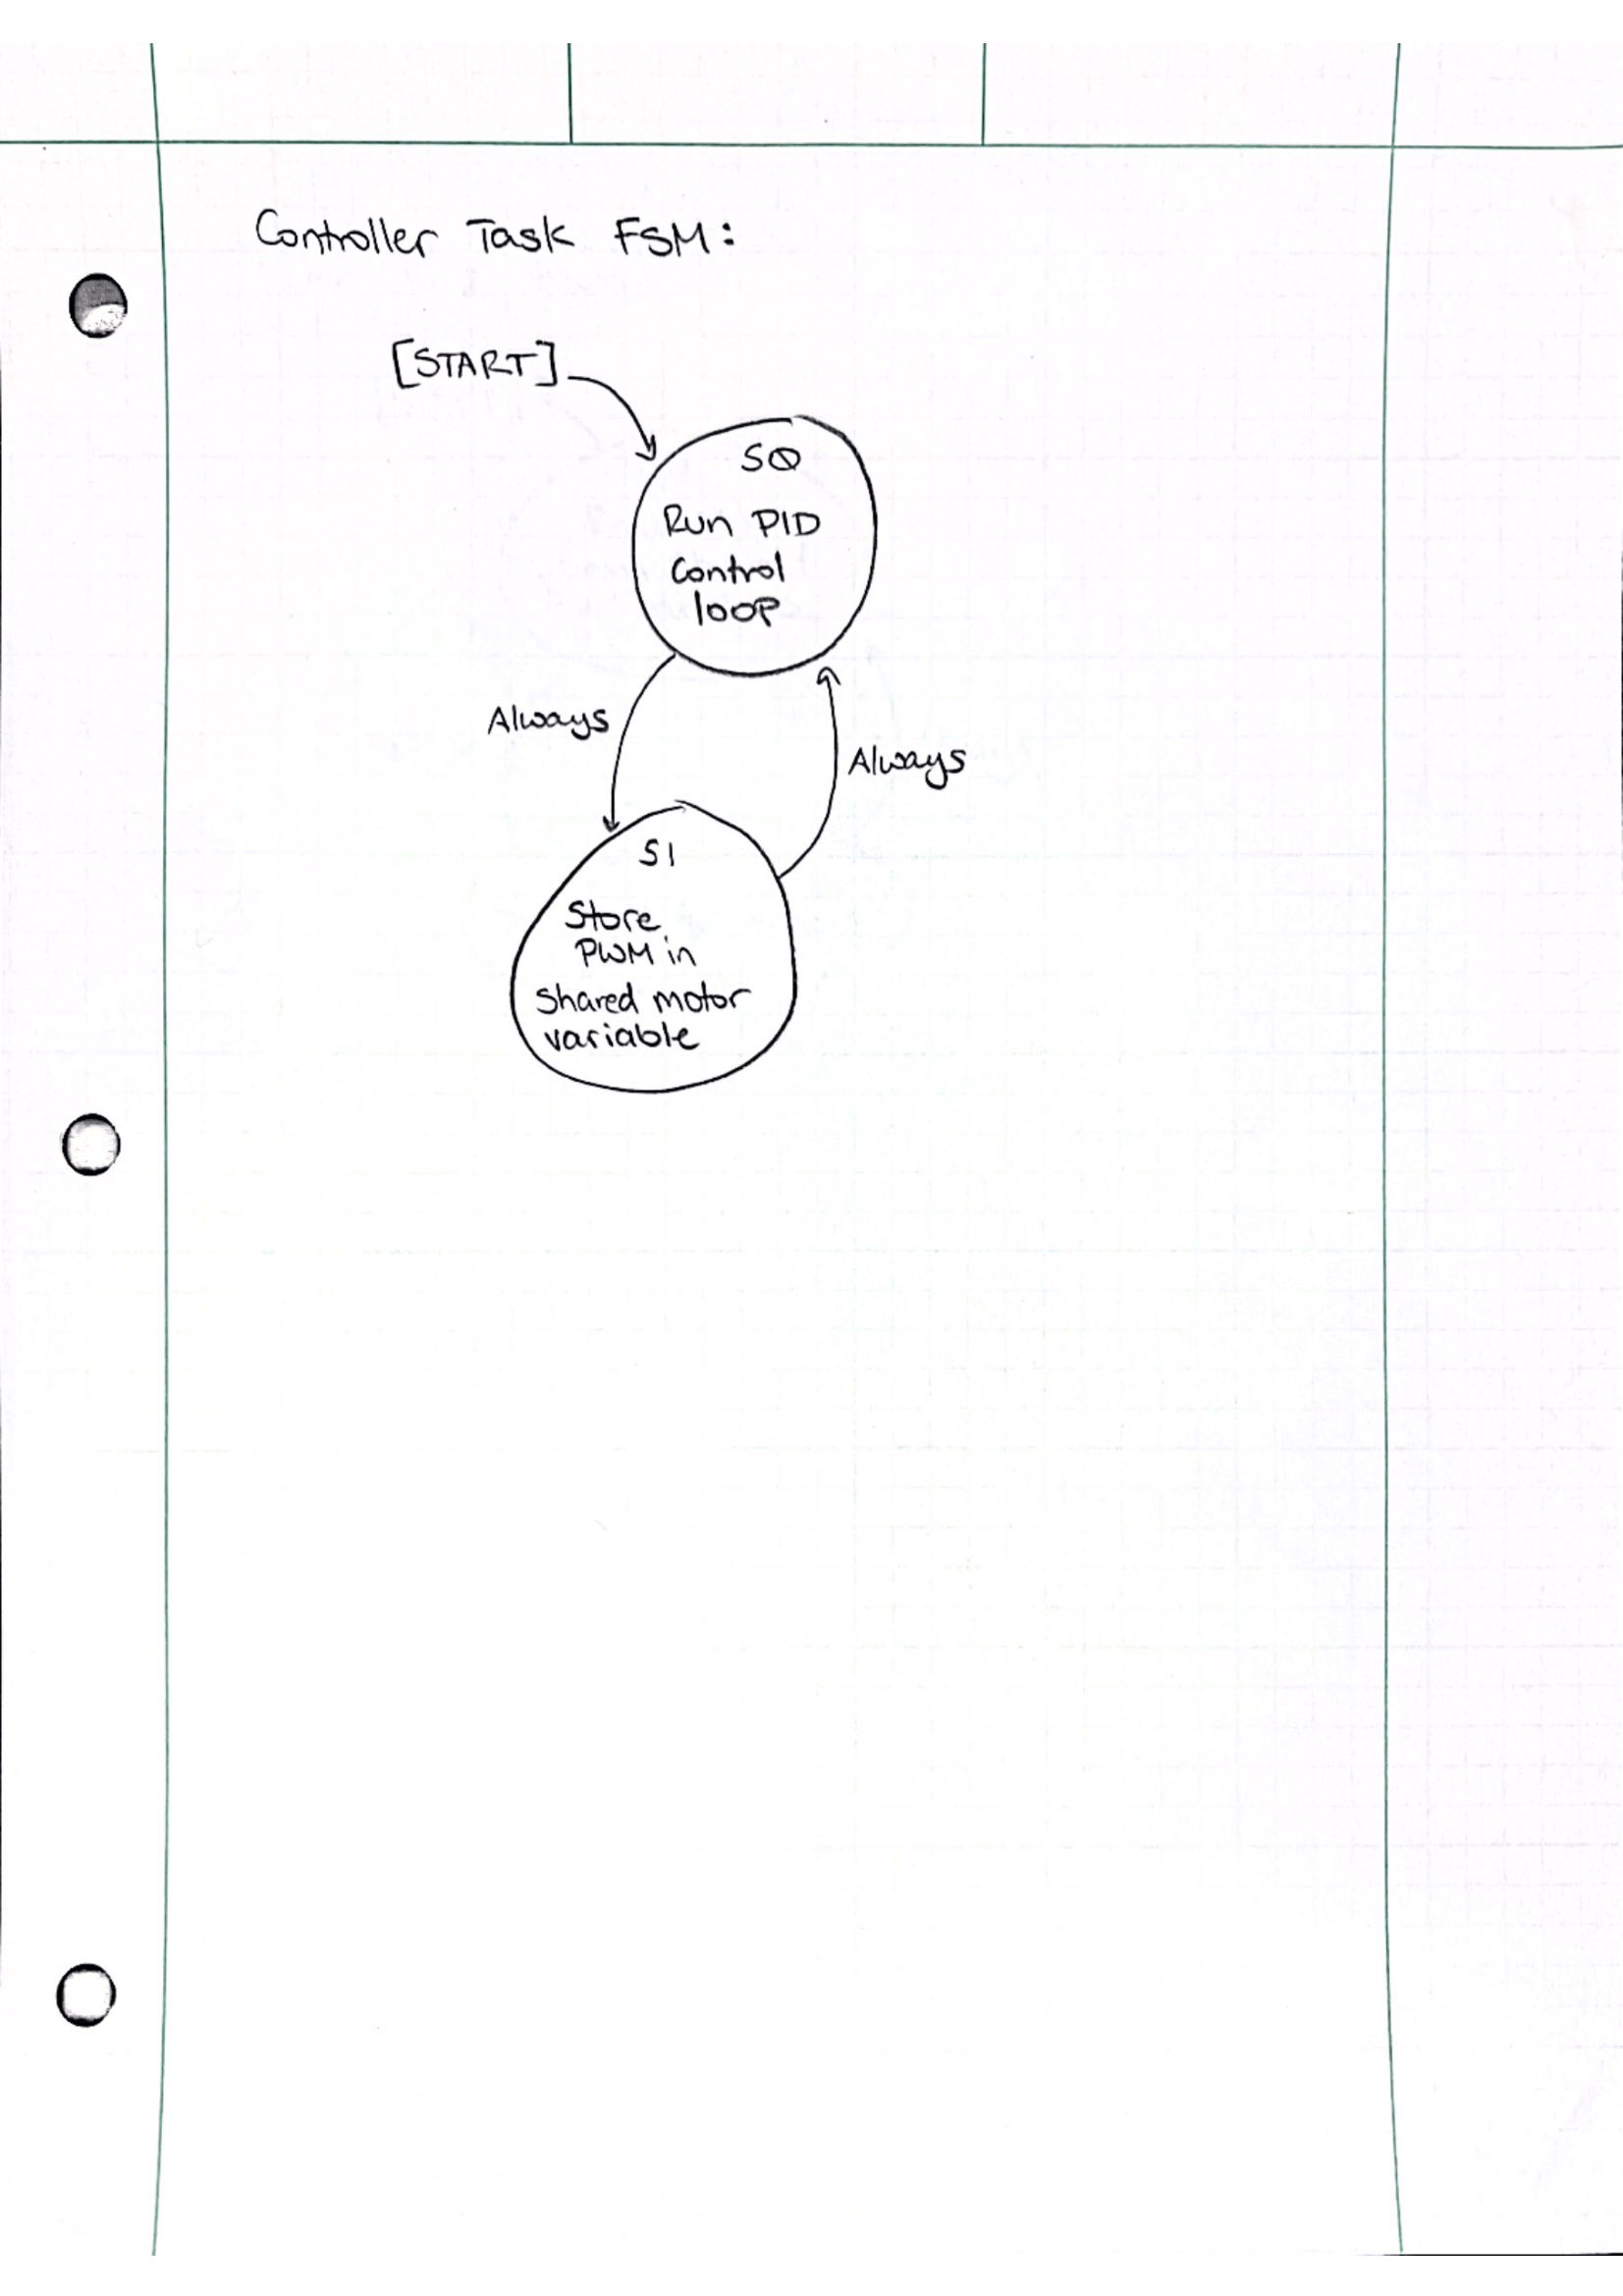 Controller Task FSM:
[START]
S0
Run PID
Control
loop
Always
Always
S1
Store
PWM in
shared motor
variable